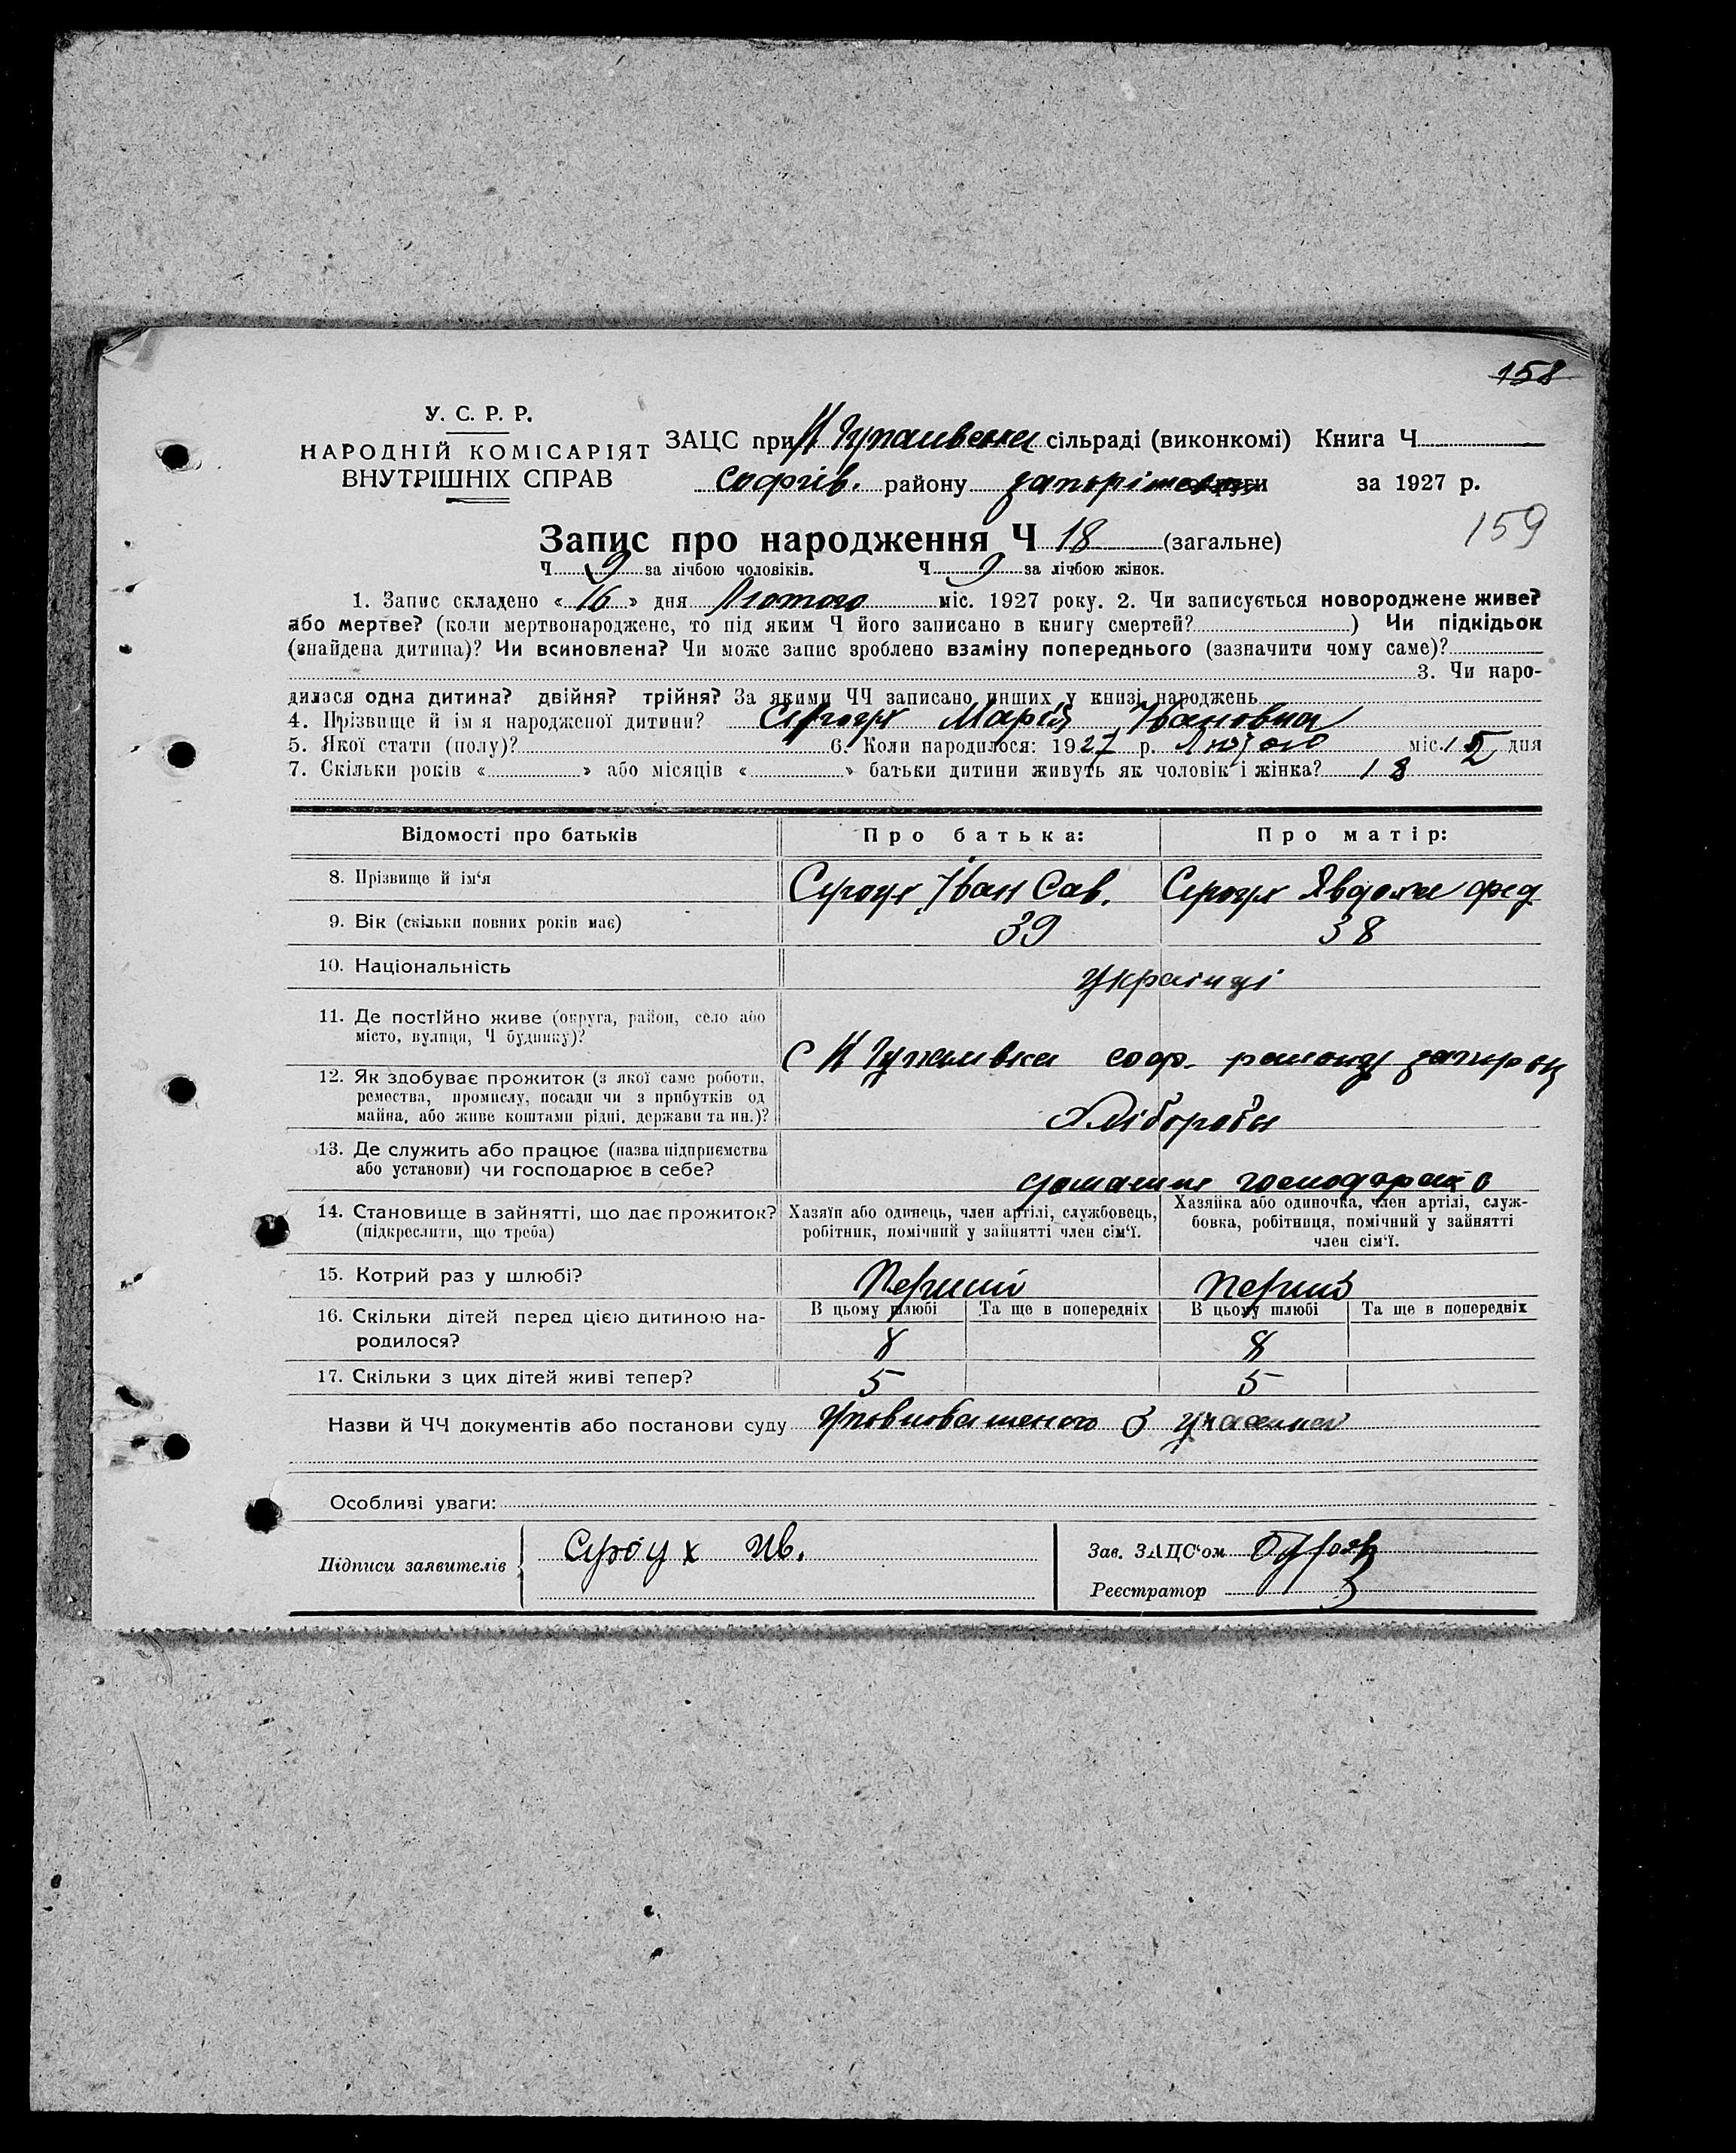 158
У. С. Р. Р.
НАРОДНІЙ КОМІСАРІЯТ
ВНУТРІШНІХ СПРАВ
ЗАЦС при сільраді (виконкомі) Книга Ч
Софіїв. району за 1927 р.
159
Запис про народження Ч 18 (загальне)
Ч 9 за лічбою чоловіків. Ч 9 за лічбою жінок.
1. Запис складено «16» дня Лютого міс. 1927 року. 2. Чи записується новороджене живе?
або мертве? (коли мертвонароджене, то під яким Ч його записано в книгу смертей?) Чи підкідьок
(знайдена дитина)? Чи всиновлена? Чи може запис зроблено взаміну попереднього (зазначити чому саме)?
3. Чи наро-
дилася одна дитина? двійня? трійня? За якими ЧЧ записано инших у книзі народжень
4. Прізвище й ім'я народженої дитини? Марія Івановна
5. Якої стати (полу)? 6. Коли народилося: 1927 р. Лютого міс. дня
7. Скільки років « » або місяців « » батьки дитини живуть як чоловік і жінка? 18
Відомості про батьків Про батька: Про матір:
8. Прізвище й ім'я Іван Сав. Явдоха Фед
9. Вік (скільки повних років має) 39 38
10. Національність Українці
11. Де постійно живе (округа, район, село або
місто, вулиця, Ч будинку)?
С Н соф. району
12. Як здобуває прожиток (з якої саме роботи,
ремества, промислу, посади чи з прибутків од
майна, або живе коштами рідні, держави та ин.)? Хлібороби
13. Де служить або працює (назва підприємства
або установи) чи господарює в себе?
домашнє
14. Становище в зайнятті, що дає прожиток? Хазяїн або одинець, член артілі, службовець, Хазяйка або одиночка, член артілі, служ-
(підкреслити, що треба) робітник, помічний у зайнятті член сім'ї. бовка, робітниця, помічний у зайнятті
член сім'ї.
15. Котрий раз у шлюбі? Перший Перший
16. Скільки дітей перед цією дитиною на- В цьому шлюбі Та ще в попередніх В цьому шлюбі Та ще в попередніх
родилося? 8 8
17. Скільки з цих дітей живі тепер? 5 5
Назви й ЧЧ документів або постанови суду
Особливі уваги:
Підписи заявителів Ив. Зав. ЗАЦС'ом
Реєстратор